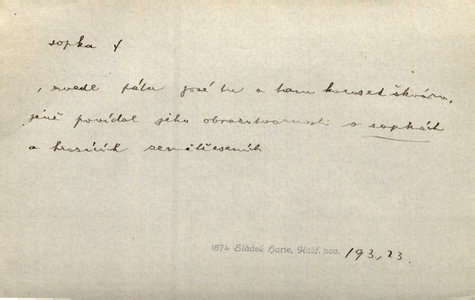 sopka f
, zvedl páter José tu a tam kousek škváru,
jenž povídal jeho obrazotvornosti o sopkách
a hrozících zemětřeseních
1874 Sládek Harte, Kalif. pov. 193,23.